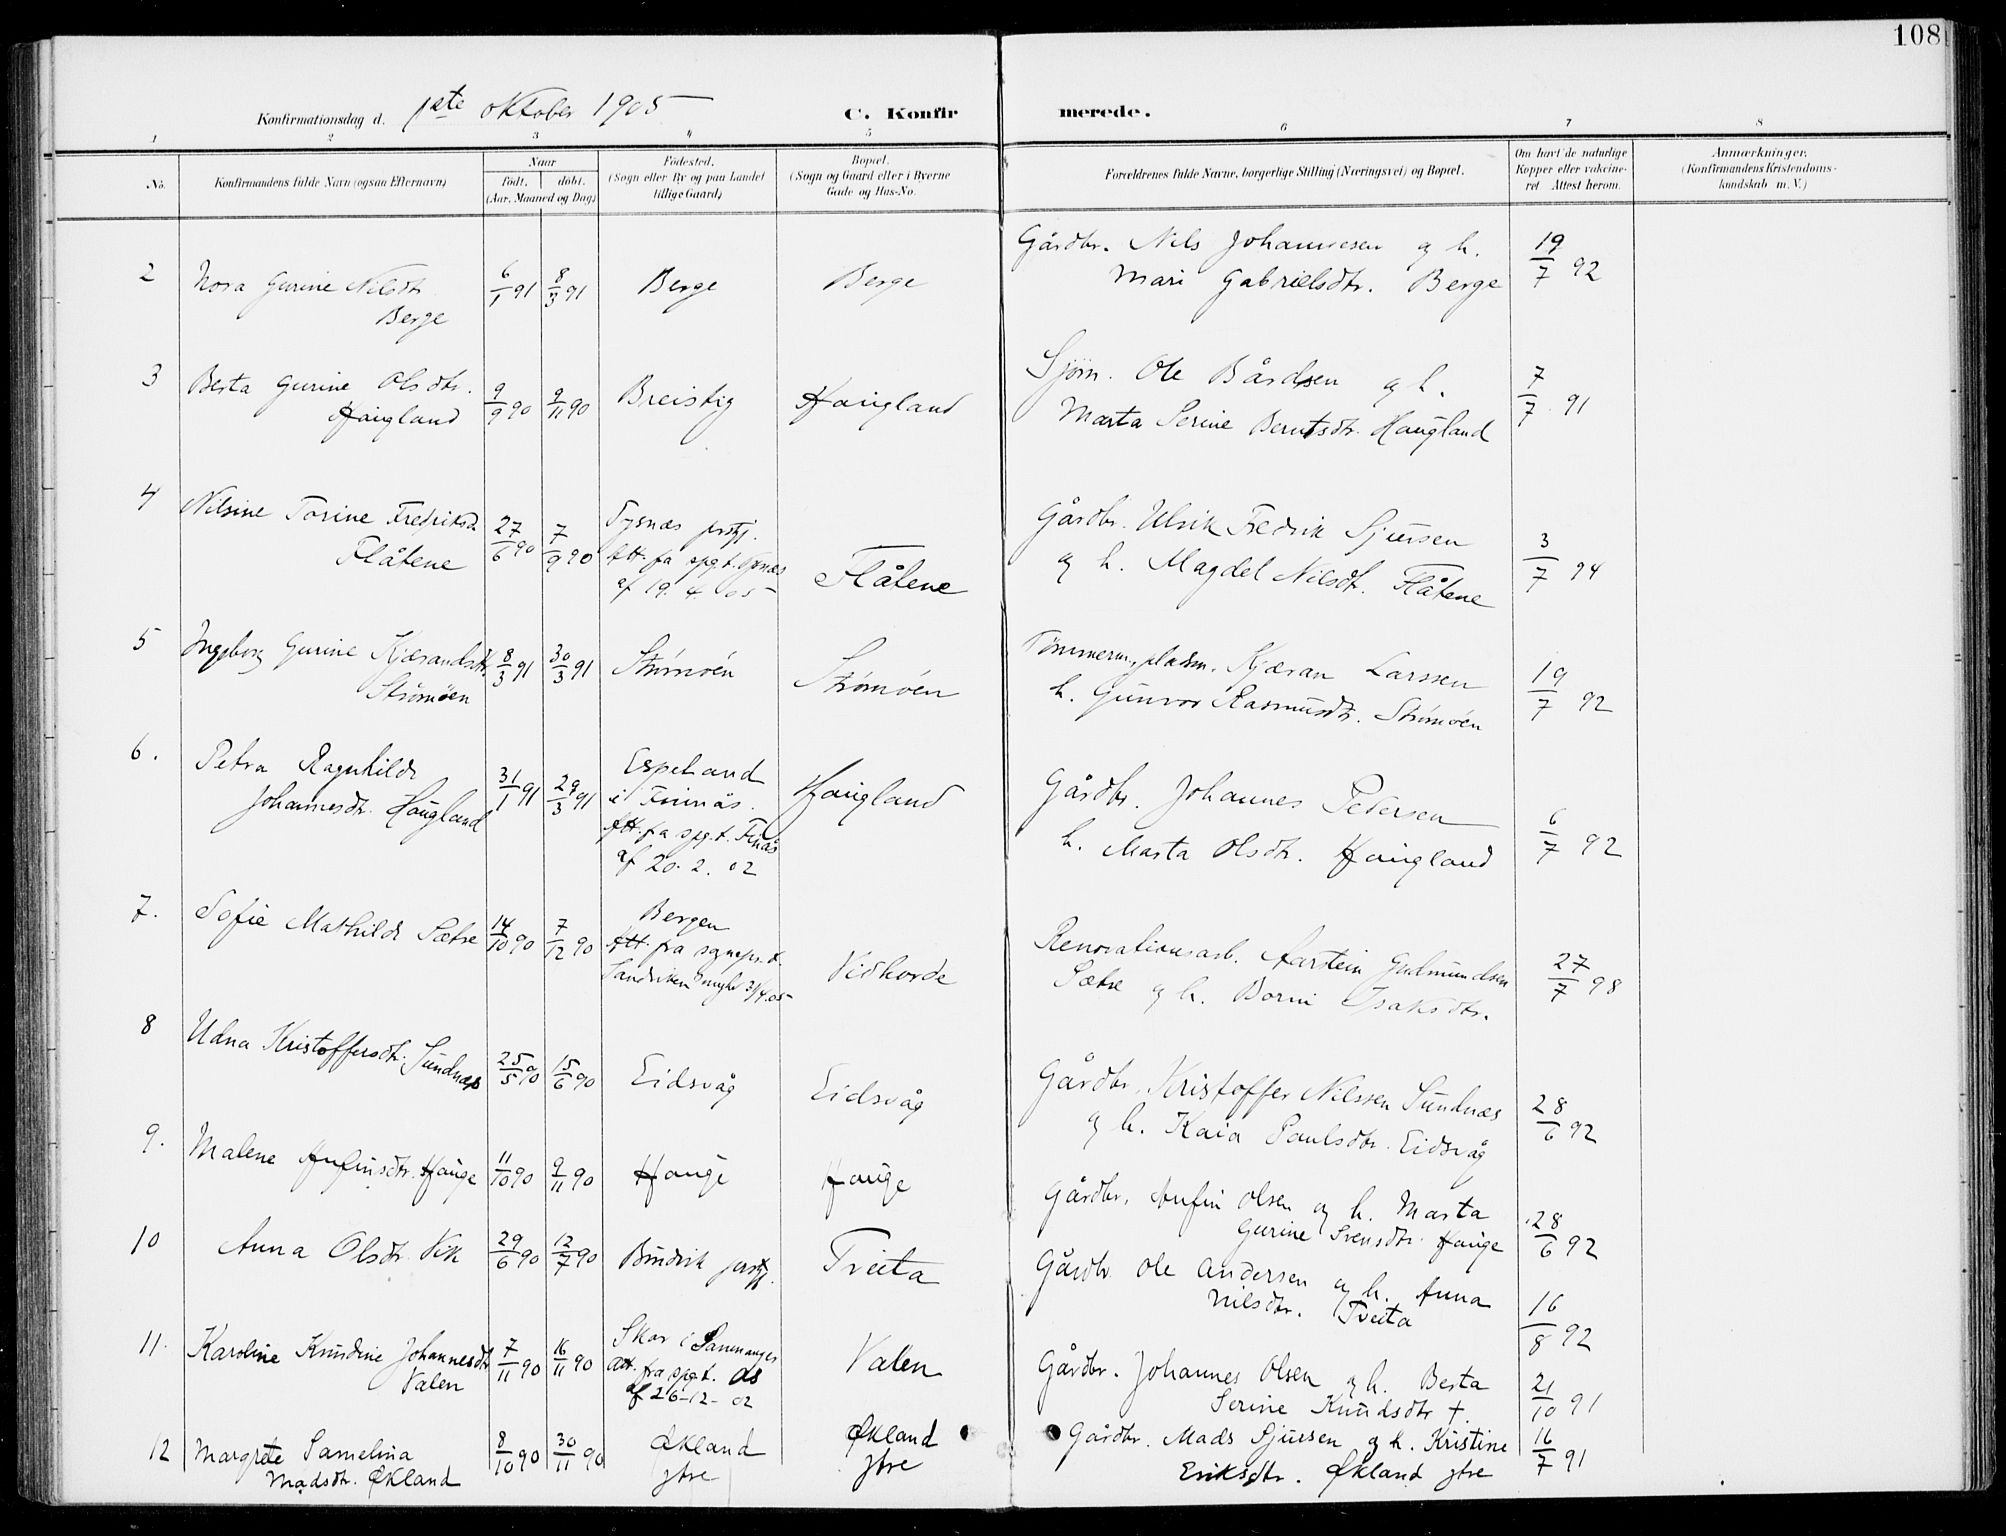 108
Konfirmationsdag d. 1ste oktober 1905
C. Konfirmerede.
1 2 3 4 5 6 7 8
No.
Konfirmandens fulde Navn (ogsaa Efternavn)
Naar
født. døbt.
(Aar, Maaned og Dag)
Fødested.
(Sogn eller By og paa Landet
tillige Gaard)
Bopæl.
(Sogn og Gaard eller i Byerne
Gade og Hus-No.
Forældrenes fulde Navne, borgerlige Stilling (Næringsvei) og Bopæl.
Om havt de naturlige
Kopper eller vakcine-
ret. Attest herom.
Anmærkninger.
(Konfirmandens Kristendoms-
kundskab m. V.)
2 Nora Gurine Nilsdtr. 6/1 91 8/3 91 Berge Berge Gårdbr. Nils Johannesen og h. 19/7 92
Berge Mari Gabrielsdtr. Berge
3 Berta Gurine Olsdtr. 9/9 90 9/11 90 Breistig Haugland Sjøm. Ole Bårdsen og h. 7/7 91
Haugland Marta Serine Berntsdtr. Haugland
4 Nilsine Torine Fredriksd. 27/6 90 7/9 90 Tysnæs prstgj. Flåtene Gårdbr. Ulrik Fredrik Sjursen 3/7 94
Flåtene Att. fra spgt. Tysnæs og h. Magdel Nilsdtr. Flåtene
af 19. 4. 05
5 Ingeborg Gurine Kjærandsdtr. 8/3 91 30/3 91 Strømøen Strømøen Tømmerm., pladsm. Kjæran Larssen 19/7 92
Strømøen h. Gunvor Rasmusdtr. Strømøen
6. Petra Ragnhild 31/1 91 29/3 91 Espeland Haugland Gårdbr. Johannes Pedersen 6/7 92
Johannesdtr. Haugland i Finnås. h. Marta Olsdtr. Haugland
Att. fra spgt. Finås
af 20. 2. 02
7. Sofie Mathilde Sætre 14/10 90 7/12 90 Bergen Vidhorde Renovationsarb. Aarstein Gudmundsen 27/7 98
Att. fra sgnepr. t. Sætre og h. Borni Isaksdtr.
Sandviken mght 3/4 05
8 Udna Kristoffersdtr. Sundnæs 25/5 90 15/6 90 Eidsvåg Eidsvåg Gårdbr. Kristoffer Nilssen Sundnæs 28/6 92
og h. Kaia Paulsdtr. Eidsvåg
9. Malene Anfinsdtr. Hauge 11/10 90 9/11 90 Hauge Hauge Gårdbr. Anfin Olsen og h. Marta 28/6 92
Gurine Svensdtr. Hauge
10 Anna Olsdtr. Vik 29/6 90 12/7 90 prstgj. Tveita Gårdbr. Ole Andersen og h. Anna 16/8 92
Nilsdtr. Tveita
11. Karoline Knudine Johannesdtr. 7/11 90 16/11 90 Skar i Sammanger Valen Gårdbr. Johannes Olsen og h. Berta 21/10 91
Valen Att. fra spgt. Os Serine Knudsdtr †.
af 26-12-02
12 Margrete Samelina 8/10 90 30/11 90 Økland Økland Gårdbr. Mads Sjursen og h. Kristine 16/7 91
Madsdtr. Økland ytre ytre Eriksdtr. Økland ytre